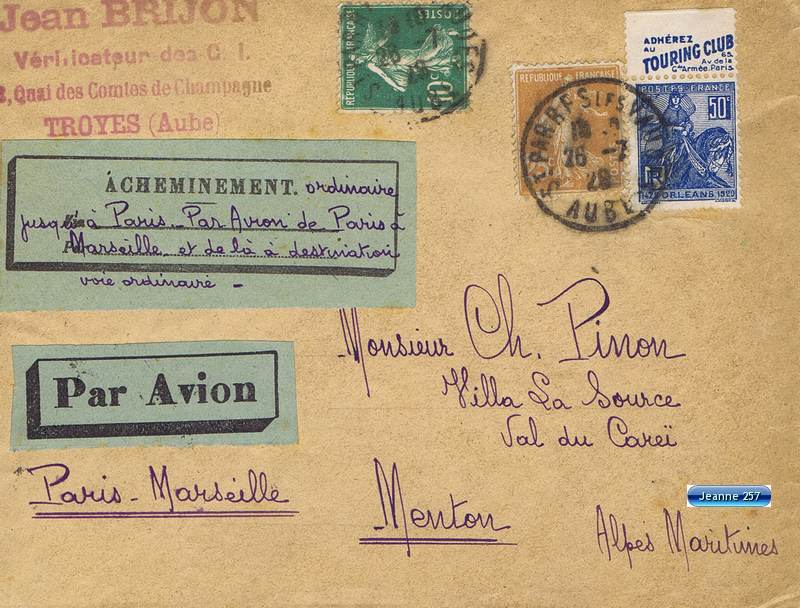 Jean BRIJON
Vérificateur des C. I.
Quai des Comtes de Champagne
TROYES (Aube)
REPUBLIQUE FRANÇAISE
POSTES
10c
AUBE
REPUBLIQUE FRANÇAISE
ADHÉREZ
AU
TOURING CLUB
65
Av de la
Gde Armée. Paris
POSTES - FRANCE
50c
ORLÉANS . 1929
ST PARRES
26 - 7
29
AUBE
ACHEMINEMENT. ordinaire
jusqu'à Paris - Par Avion de Paris à
Marseille et de là à destination
voie ordinaire -
Par Avion
Paris - Marseille
Monsieur Ch. Pinon
Villa La Source
Val du Careï
Menton
Alpes Maritimes
Jeanne 257